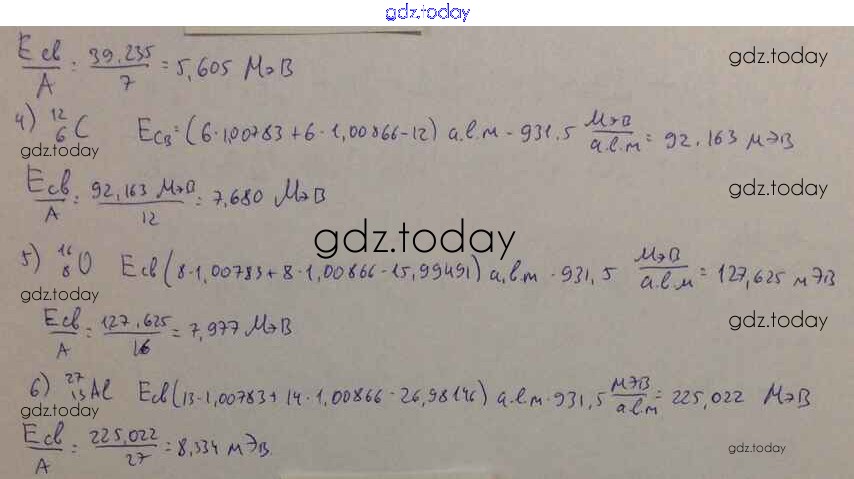 gdz.today
Eсв/A = 39,235/7 = 5,605 МэВ
gdz.today
4) ¹²₆C Eсв = (6·1,00783+6·1,00866-12) а.е.м · 931.5 МэВ/а.е.м = 92.163 мэВ
gdz.today
Eсв/A = 92,163 МэВ/12 = 7,680 МэВ
gdz.today
gdz.today
5) ¹⁶₈O Eсв (8·1,00783+8·1,00866-15,99491) а.е.м · 931,5 МэВ/а.е.м = 127,625 мэВ
gdz.today
Eсв/A = 127,625/16 = 7,977 МэВ
gdz.today
6) ²⁷₁₃Al Eсв (13·1,00783+14·1,00866-26,98146) а.е.м · 931,5 МэВ/а.е.м = 225,022 МэВ
gdz.today
Eсв/A = 225,022/27 = 8,334 мэВ
gdz.today